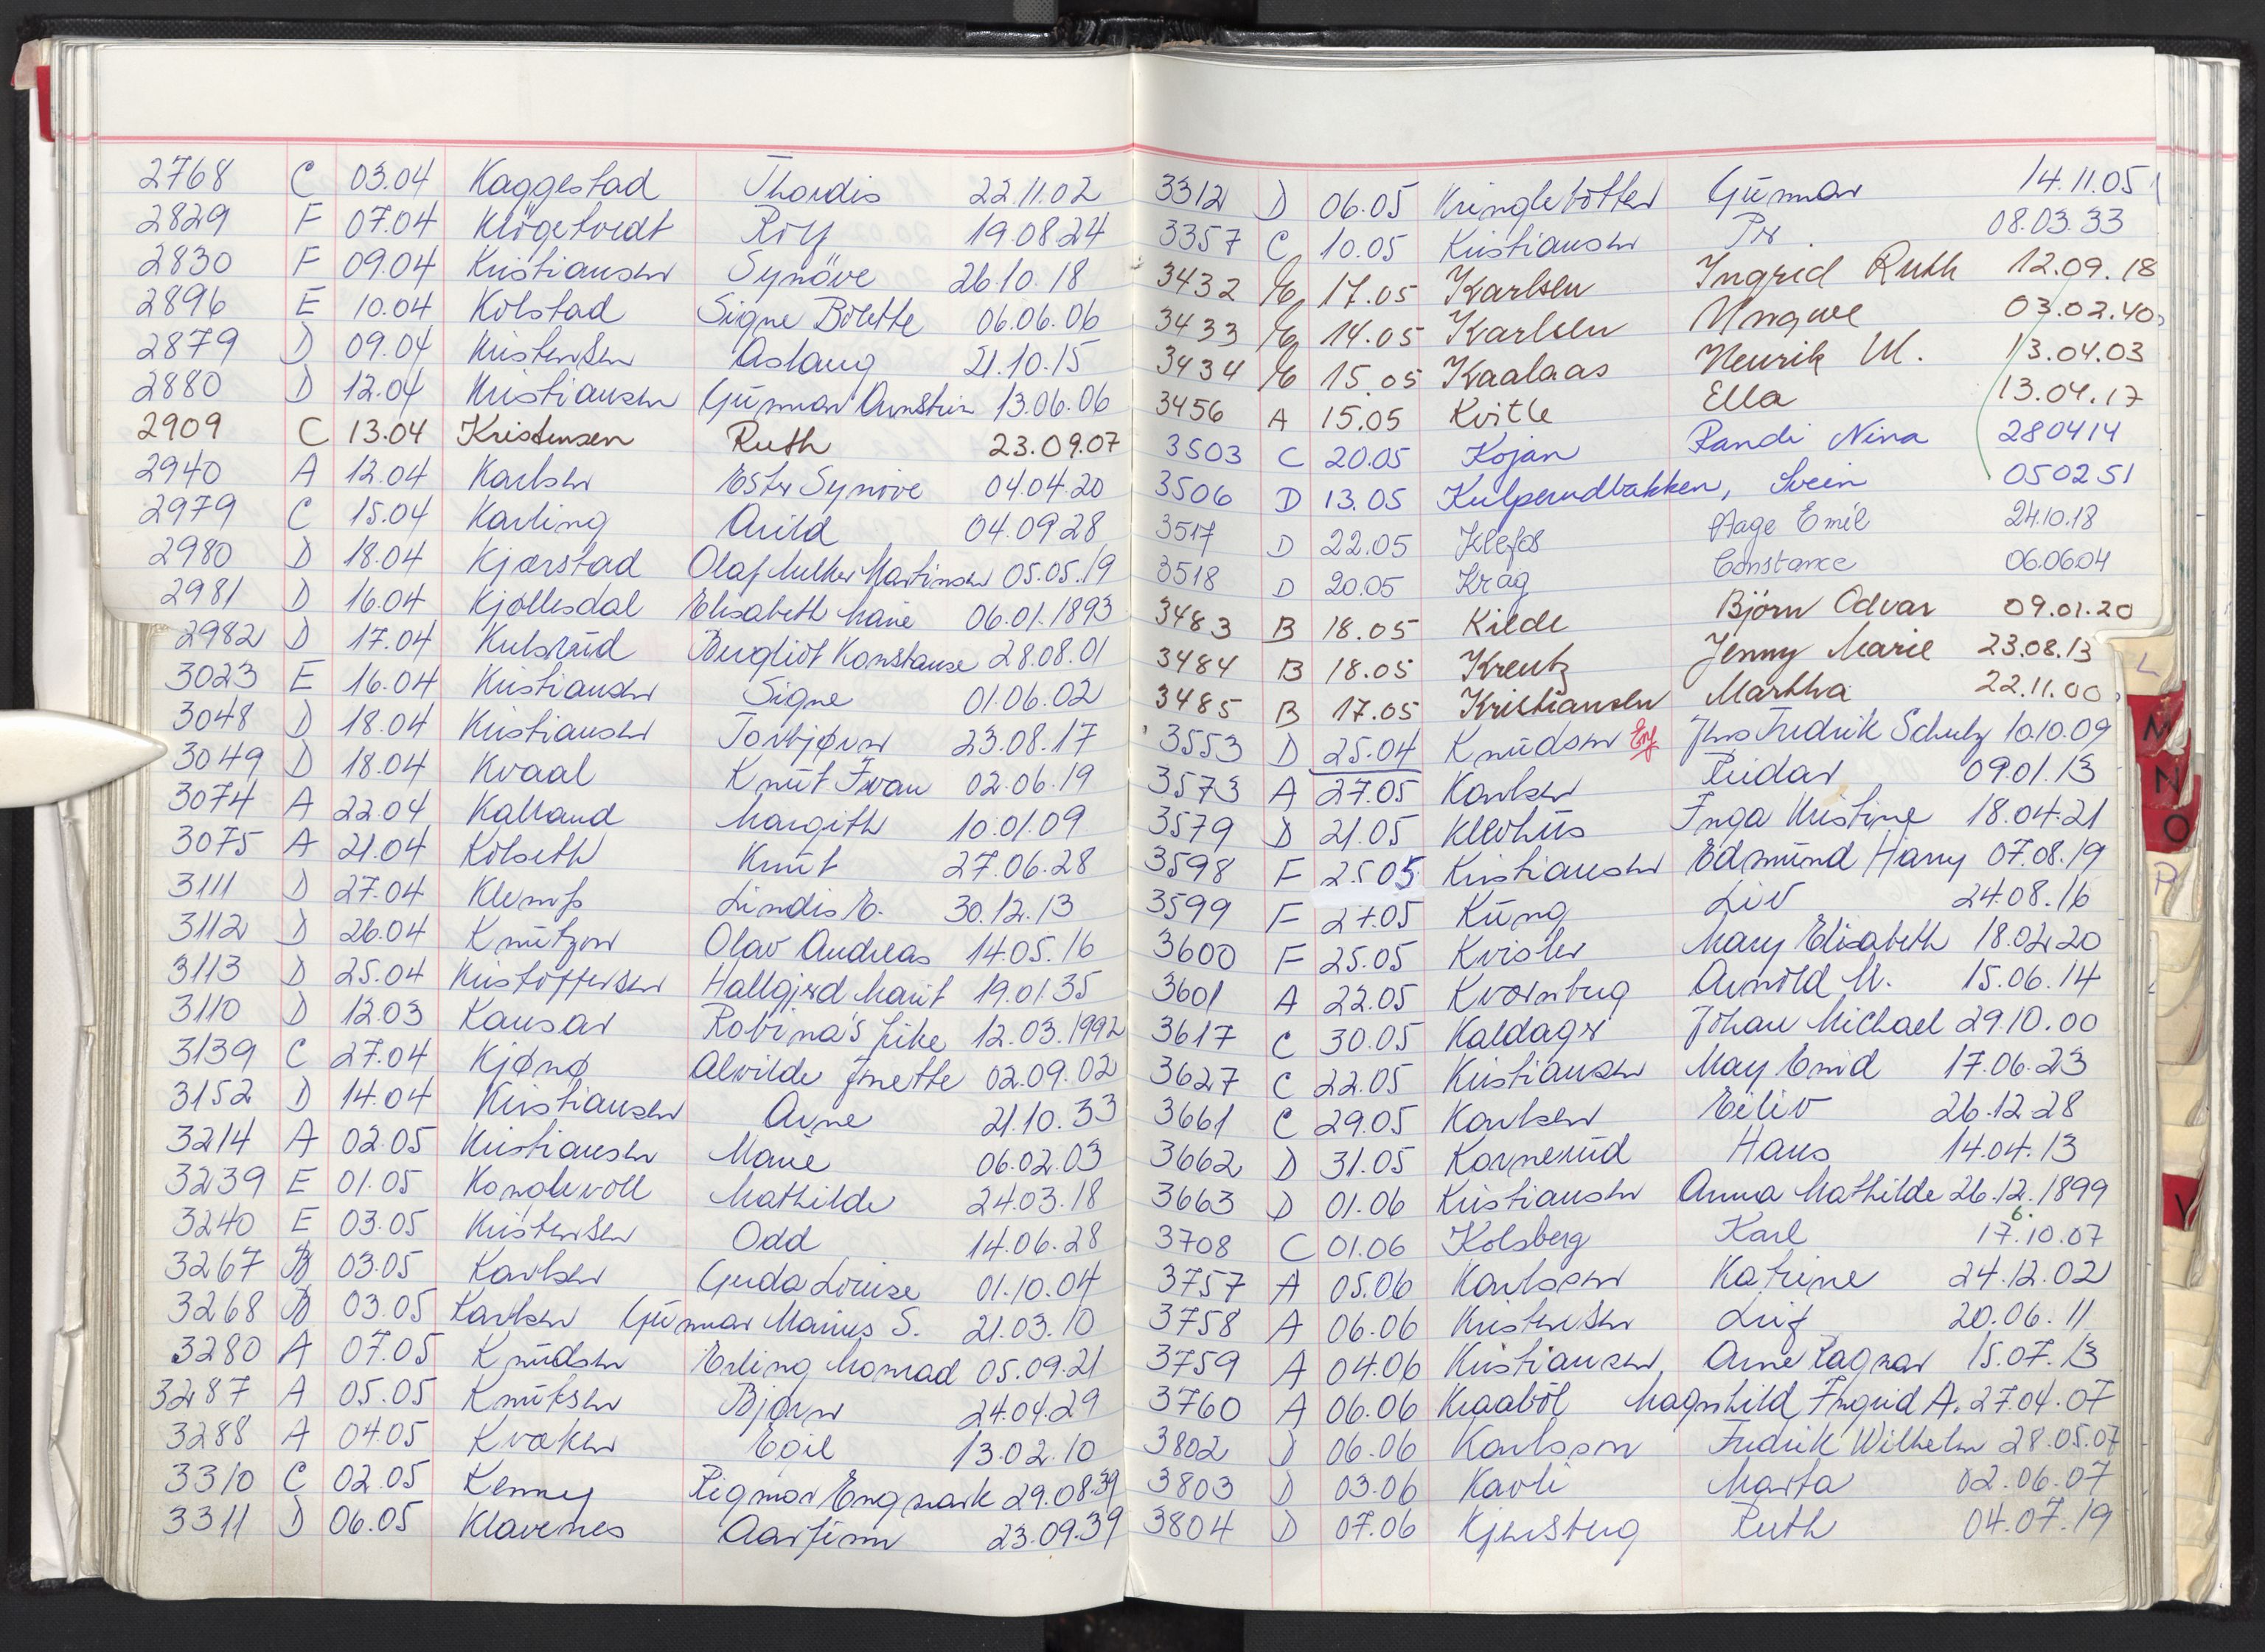 2768 C 03.04 Kaggestad Thordis 22.11.02
2829 F 07.04 Klögetvedt Rolf 19.08.24
2830 F 09.04 Kristiansen Synöve 26.10.18
2896 E 10.04 Kolstad Signe Bolette 06.06.06
2879 D 09.04 Kristensen Aslaug 21.10.15
2880 D 12.04 Kristiansen Gunnar Arnstein 13.06.06
2909 C 13.04 Kristensen Ruth 23.09.07
2940 A 12.04 Karlsen Ester Synove 04.04.20
2979 C 15.04 Karling Arild 04.09.28
2980 D 18.04 Kjærstad Olaf Martinsen 05.05.19
2981 D 16.04 Kjøllesdal Elisabeth Marie 06.01.1893
2982 D 17.04 Kulsrud Bergliot Konstanse 28.08.01
3023 E 16.04 Kristiansen Signe 01.06.02
3048 D 18.04 Kristiansen Torbjørn 23.08.17
3049 D 18.04 Kvaal Knut Ivan 02.06.19
3074 A 22.04 Kalland Margith 10.01.09
3075 A 21.04 Kolseth Knut 27.06.28
3111 D 27.04 Klemp Lindis E. 30.12.13
3112 D 26.04 Knutzon Olav Andreas 14.05.16
3113 D 25.04 Kristoffersen Hallgjerd Marit 19.01.35
3110 D 12.03 Kausar Robina's pike 12.03.1992
3139 C 27.04 Kjønø Alvilde Jinette 02.09.02
3152 D 14.04 Kristiansen Arne 21.10.33
3214 A 02.05 Kristiansen Marie 06.02.03
3239 E 01.05 Konglevoll Mathilde 24.03.18
3240 E 03.05 Kristensen Odd 14.06.28
3267 B 03.05 Karlsen Gerda Louise 01.10.04
3268 B 03.05 Karlsen Gunnar Marius S. 21.03.10
3280 A 07.05 Knudsen Erling Monrad 05.09.21
3287 A 05.05 Knutsen Bjørn 24.04.29
3288 A 04.05 Kvaken Egil 13.02.10
3310 C 02.05 Kenny Rigmor Engmark 29.08.39
3311 D 06.05 Klavenes Aarfinn 23.09.39
3312 D 06.05 Kringlebotten Gunnar 14.11.05
3357 C 10.05 Kristiansen Per 08.03.33
3432 E 17.05 Karlsen Ingrid Ruth 12.09.18
3433 E 14.05 Karlsen Yngve 03.02.40
3434 E 15.05 Kaalaas Henrik M. 13.04.03
3456 A 15.05 Kvitle Ella 13.04.17
3503 C 20.05 Kojan Randi Nina 280414
3506 D 13.05 Kulperudbakken, Svein 050251
3517 D 22.05 Klefos Aage Emil 24.10.18
3518 D 20.05 Krag Constance 06.06.04
3483 B 18.05 Kilde Björn Odvar 09.01.20
3484 B 18.05 Kreutz Jenny Marie 23.08.13
3485 B 17.05 Kristiansen Martha 22.11.00
3553 D 25.04 Knudsen Jens Fredrik Schulz 10.10.09
3573 A 27.05 Karlsen Reidar 09.01.13
3579 D 21.05 Klevhus Inga Kristine 18.04.21
3598 F 25.05 Kristiansen Edmund Harry 07.08.19
3599 F 27.05 Kung Liv 24.08.16
3600 F 25.05 Kvisler Mary Elisabeth 18.02.20
3601 A 22.05 Kvarnberg Arnold M. 15.06.14
3617 C 30.05 Kaldager Johan Michael 29.10.00
3627 C 22.05 Kristiansen May Enid 17.06.23
3661 C 29.05 Karlsen Eiliv 26.12.28
3662 D 31.05 Kornerud Hans 14.04.13
3663 D 01.06 Kristiansen Anna Mathilde 26.12.1899
3708 C 01.06 Kolsberg Karl 17.10.07
6.
3757 A 05.06 Karlsson Katrine 24.12.02
3758 A 06.06 Kristensen Leif 20.06.11
3759 A 04.06 Kristiansen Arne Ragnar 15.07.13
3760 A 06.06 Kraaböl Magnhild Ingrid A. 27.04.07
3802 D 06.06 Karlsson Fredrik Wilhelm 28.05.07
3803 D 03.06 Kavli Marta 02.06.07
3804 D 07.06 Kjensberg Ruth 04.07.19
L
M
N
O
P
V